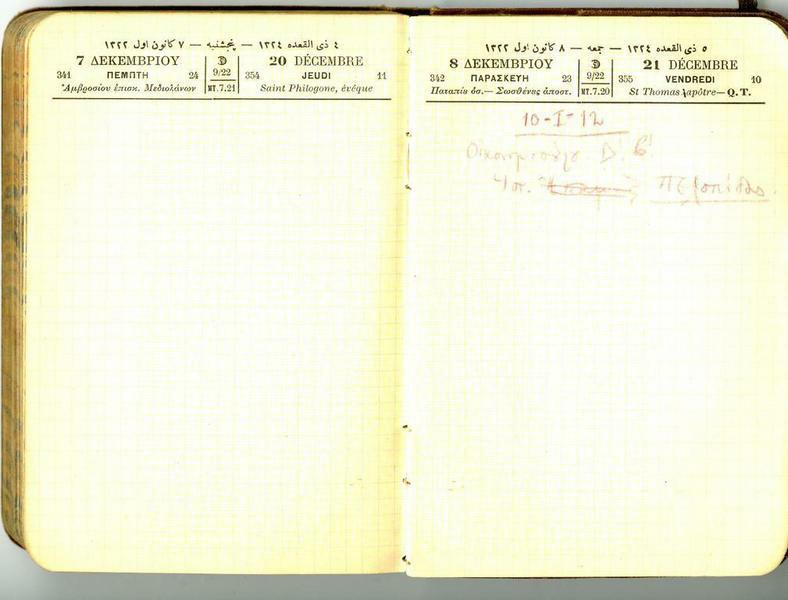 ٤ ذی القعده ١٣٢٤ — پنجشنبه — ٧ كانون اول ١٣٢٢
7 ΔΕΚΕΜΒΡΙΟΥ
20 DÉCEMBRE
341 ΠΕΜΠΤΗ 24
9/22
354 JEUDI 11
Ἀμβροσίου ἐπισκ. Μεδιολάνων
ΜΤ.7.21
Saint Philogone, évêque
٥ ذی القعده ١٣٢٤ — جمعه — ٨ كانون اول ١٣٢٢
8 ΔΕΚΕΜΒΡΙΟΥ
21 DÉCEMBRE
342 ΠΑΡΑΣΚΕΥΗ 23
9/22
355 VENDREDI 10
Παταπίο ὁσ.— Σωσθένες ἀποστ.
ΜΤ.7.20
St Thomas apôtre—Q.T.
10-I-12